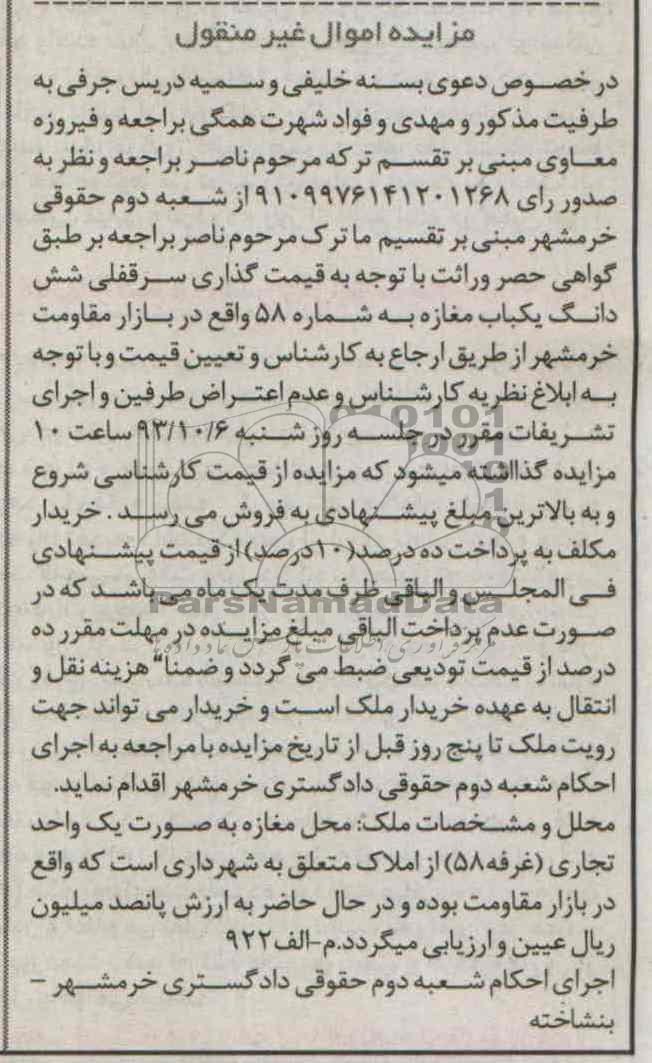 مزایده اموال غیر منقول
در خصوص دعوی بسنه خلیفی و سمیه دریس جرفی به
طرفیت مذکور و مهدی و فواد شهرت همگی براجعه و فیروزه
معاوی مبنی بر تقسم ترکه مرحوم ناصر براجعه و نظر به
صدور رای ۹۱۰۹۹۷۶۱۴۱۲۰۱۲۶۸ از شعبه دوم حقوقی
خرمشهر مبنی بر تقسیم ماترک مرحوم ناصر براجعه بر طبق
گواهی حصر وراثت با توجه به قیمت گذاری سرقفلی شش
دانگ یکباب مغازه به شماره ۵۸ واقع در بازار مقاومت
خرمشهر از طریق ارجاع به کارشناس و تعیین قیمت و با توجه
به ابلاغ نظریه کارشناس و عدم اعتراض طرفین و اجرای
تشریفات مقرر در جلسه روز شنبه ۹۳/۱۰/۶ ساعت ۱۰
مزایده گذااشته میشود که مزایده از قیمت کارشناسی شروع
و به بالاترین مبلغ پیشنهادی به فروش می رسد . خریدار
مکلف به پرداخت ده درصد(۱۰درصد) از قیمت پیشنهادی
فی المجلس و الباقی ظرف مدت یک ماه می باشد که در
ParsNamadData
صورت عدم پرداخت الباقی مبلغ مزایده در مهلت مقرر ده
درصد از قیمت تودیعی ضبط می گردد و ضمنا" هزینه نقل و
انتقال به عهده خریدار ملک است و خریدار می تواند جهت
رویت ملک تا پنج روز قبل از تاریخ مزایده با مراجعه به اجرای
احکام شعبه دوم حقوقی دادگستری خرمشهر اقدام نماید.
محلل و مشخصات ملک: محل مغازه به صورت یک واحد
تجاری (غرفه۵۸) از املاک متعلق به شهرداری است که واقع
در بازار مقاومت بوده و در حال حاضر به ارزش پانصد میلیون
ریال عیین و ارزیابی میگردد.م-الف۹۲۲
اجرای احکام شعبه دوم حقوقی دادگستری خرمشهر –
بنشاخته